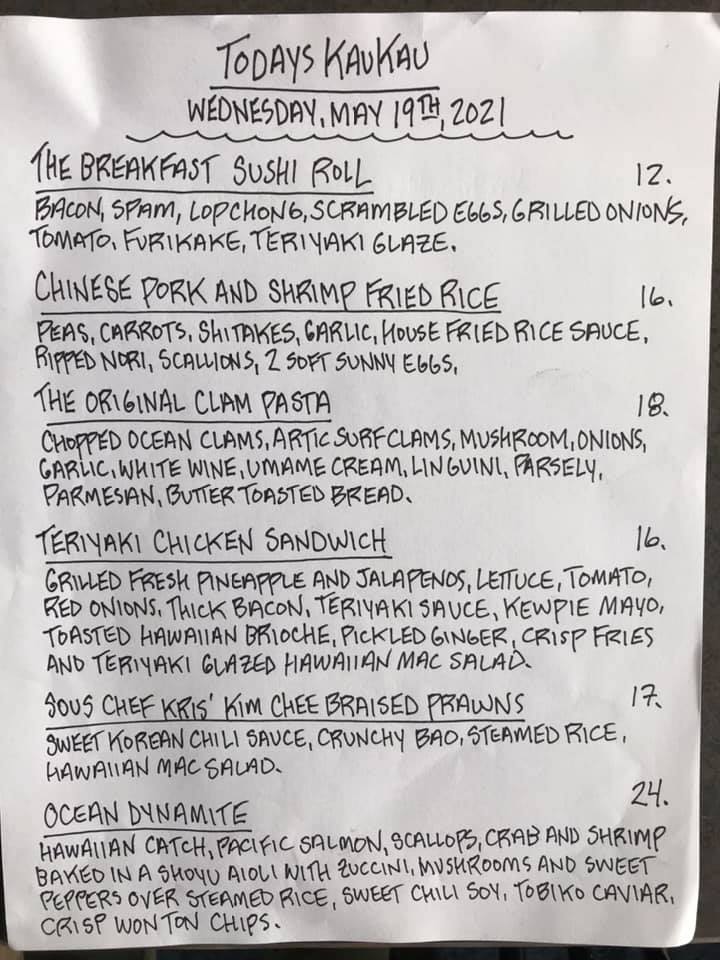 TODAYS KAUKAU
WEDNESDAY, MAY 19TH, 2021
THE BREAKFAST SUSHI ROLL 12.
BACON, SPAM, LOPCHONG, SCRAMBLED EGGS, GRILLED ONIONS,
TOMATO, FURIKAKE, TERIYAKI GLAZE.
CHINESE PORK AND SHRIMP FRIED RICE 16.
PEAS, CARROTS, SHITAKES, GARLIC, HOUSE FRIED RICE SAUCE,
RIPPED NORI, SCALLIONS, 2 SOFT SUNNY EGGS,
THE ORIGINAL CLAM PASTA 18.
CHOPPED OCEAN CLAMS, ARTIC SURF CLAMS, MUSHROOM, ONIONS,
GARLIC, WHITE WINE, UMAME CREAM, LINGUINI, PARSELY,
PARMESAN, BUTTER TOASTED BREAD.
TERIYAKI CHICKEN SANDWICH 16.
GRILLED FRESH PINEAPPLE AND JALAPENOS, LETTUCE, TOMATO,
RED ONIONS, THICK BACON, TERIYAKI SAUCE, KEWPIE MAYO,
TOASTED HAWAIIAN BRIOCHE, PICKLED GINGER, CRISP FRIES
AND TERIYAKI GLAZED HAWAIIAN MAC SALAD.
SOUS CHEF KRIS' KIM CHEE BRAISED PRAWNS 17.
SWEET KOREAN CHILI SAUCE, CRUNCHY BAO, STEAMED RICE,
HAWAIIAN MAC SALAD.
OCEAN DYNAMITE 24.
HAWAIIAN CATCH, PACIFIC SALMON, SCALLOPS, CRAB AND SHRIMP
BAKED IN A SHOYU AIOLI WITH ZUCCINI, MUSHROOMS AND SWEET
PEPPERS OVER STEAMED RICE, SWEET CHILI SOY, TOBIKO CAVIAR,
CRISP WONTON CHIPS.